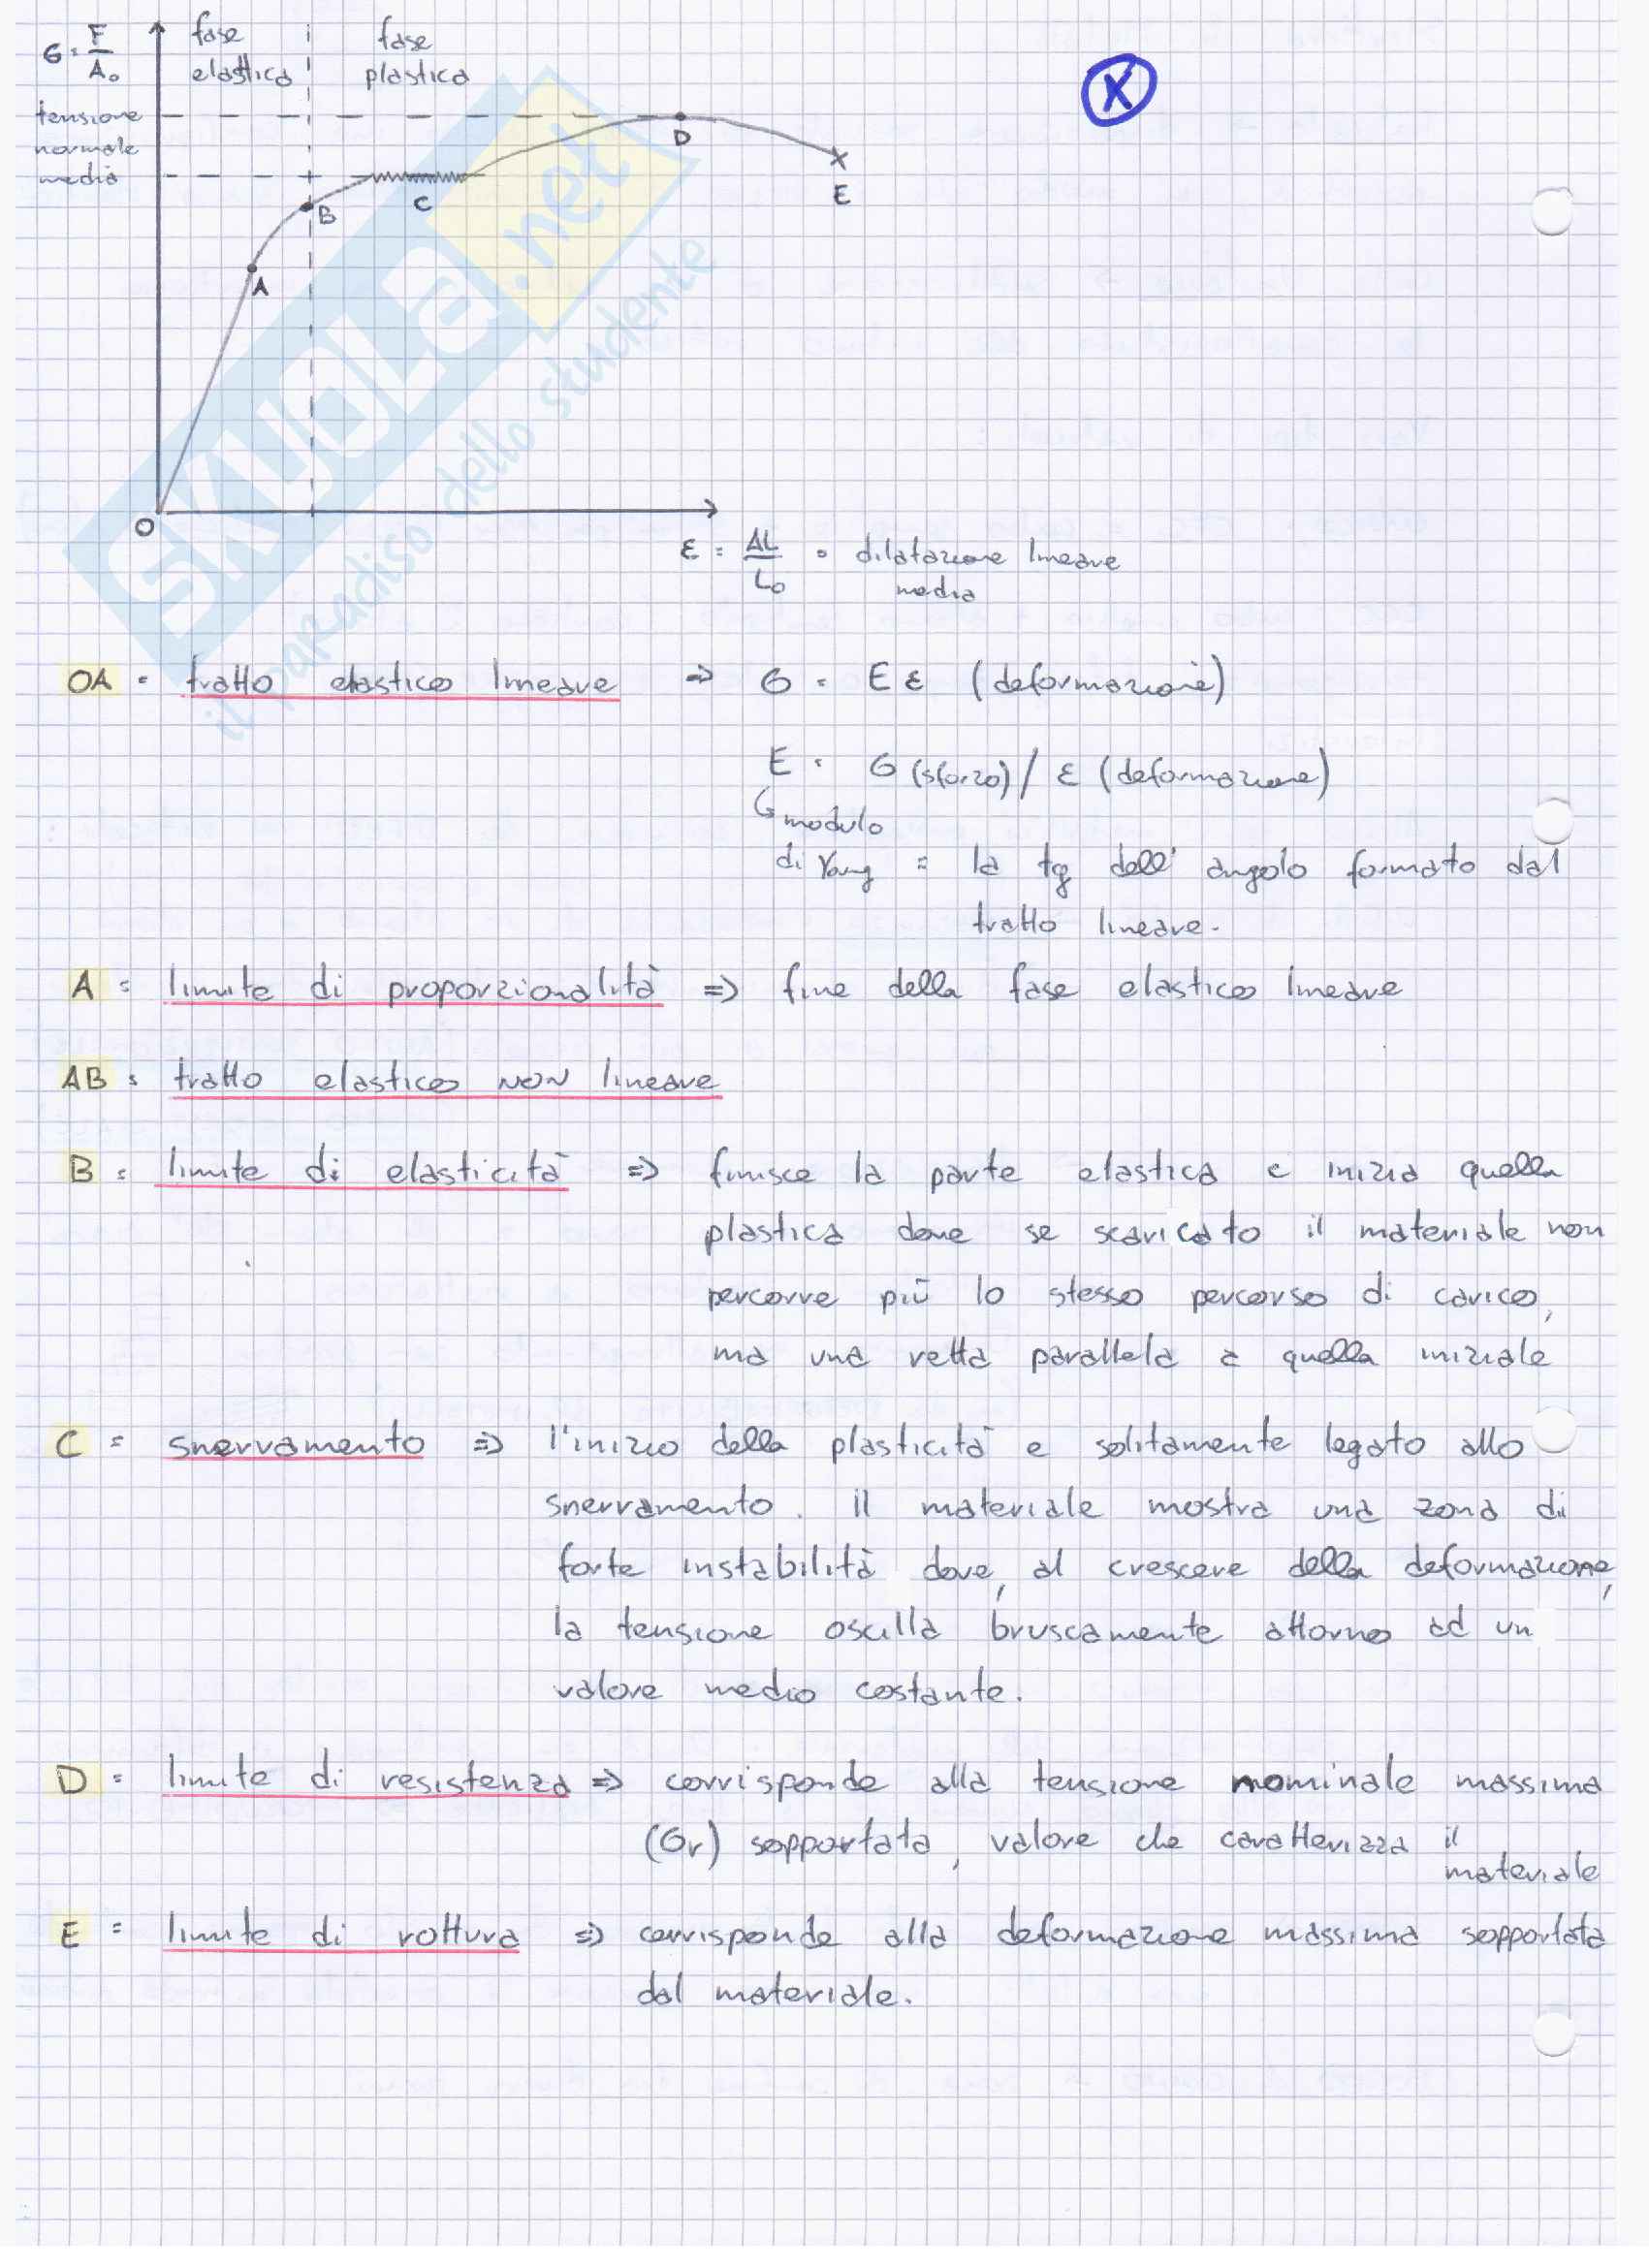 σ = F/A₀
fase elastica
fase plastica
tensione normale media
X
D
E
B
C
A
O
ε = ΔL/L₀ = dilatazione lineare media
SKUOLA.net
il paradiso dello studente
OA = tratto elastico lineare ⇒ σ = E ε (deformazione)
E = σ (sforzo) / ε (deformazione)
↳ modulo
di Young = la tg dell' angolo formato dal
tratto lineare.
A = limite di proporzionalità ⇒ fine della fase elastico lineare
AB = tratto elastico NON lineare
B = limite di elasticità ⇒ finisce la parte elastica e inizia quella
plastica dove se scaricato il materiale non
percorre più lo stesso percorso di carico,
ma una retta parallela a quella iniziale
C = snervamento ⇒ l'inizio della plasticità e solitamente legato allo
snervamento. Il materiale mostra una zona di
forte instabilità dove, al crescere della deformazione,
la tensione oscilla bruscamente attorno ad un
valore medio costante.
D = limite di resistenza ⇒ corrisponde alla tensione nominale massima
(σr) sopportata, valore che caratterizza il
materiale
E = limite di rottura ⇒ corrisponde alla deformazione massima sopportata
dal materiale.